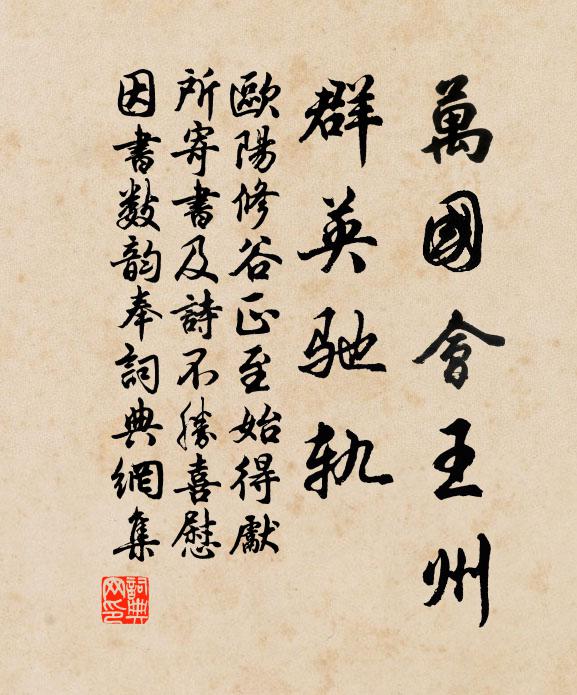 萬國會王州
群英馳軌
歐陽修谷正至始得獻
所寄書及詩不勝喜慰
因書數韵奉詞典網集
詞典網印